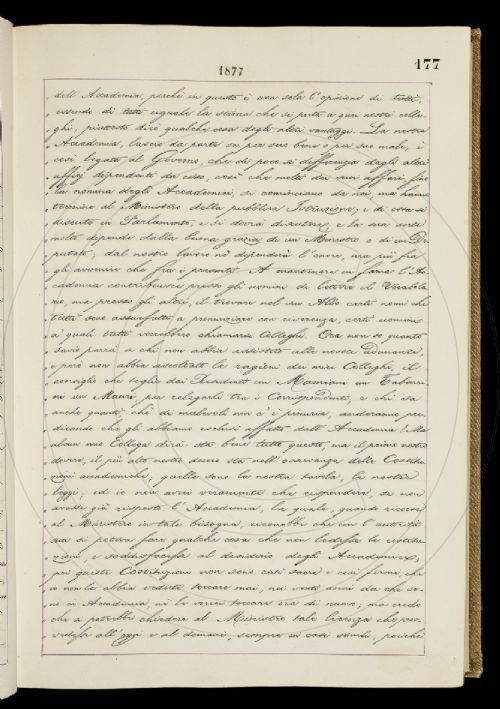 177
1877
dell'Accademia, perché in questo è una sola l'opinione di tutti,
essendo di tutti uguale la stima che si porta a quei nostri colle-
ghi, piuttosto dirò qualche cosa degli altri vantaggi. La nostra
Accademia, lascio da parte se per suo bene o per suo male, è
così legata al Governo, che di poco si differenzia dagli altri
uffizj dipendenti da esso, molti dei suoi affari, fino
la nomina degli Accademici, si cominciano da noi, ma hanno
termine al Ministero della pubblica Istruzione; e di essa si
discute in Parlamento, e si dovrà discutere, e la sua sorte
molto depende dalla buona grazia di un Ministro o di un De-
putato; dal nostro lavoro no dependerà l'onore, ma più fra
gli avvenire che fra i presenti. A mantenere in fama l'Ac-
cademia contribuisce presso gli uomini di lettere il Vocabola-
rio, ma presso gli altri, il trovare nel suo Albo certi nomi che
tutti sono assuefatti a pronunziare con riverenza, certi uomini
a quali tutti vorrebbero chiamarsi Colleghi. Ora non so quanto
savio parrà a chi non abbia assistito alle nostre adunanze,
e però non abbia ascoltate le ragioni dei miei Colleghi, il
consiglio che toglie dai Residenti un Mamiani un Tabarri-
ni un Mauri, per relegarli tra i Corrispondenti, e chi sa
anche quanti, chè di malevoli non c'è penuria, anderanno pre-
dicando che gli abbiamo esclusi affatto dall'Accademia! Ma
alcun mio Collega dirà: sta bene tutto questo, ma il primo nostro
dovere, il più alto nostro decoro sta nell'osservanza delle Costitu-
zioni accademiche, quelle sono la nostra tavola, la nostra
legge, ed io non avrei veramente che rispondere, se non
avesse già risposto l'Accademia, la quale, quando ricorse
al Ministero in tale bisogna, riconobbe che con l'autorità
sua si poteva fare qualche cosa che non ledesse le costitu-
zioni, e soddisfacesse al desiderio degli Accademici,
poi queste Costituzioni non sono così sacre e così ferme, che
io non le abbia vedute toccare mai, nei venti anni da che so-
no in Accademia, nè le vorrei toccare ora di nuovo, ma credo
che si potrebbe chiedere al Ministro tale licenza che prov-
vedesse all'oggi e al domani, sempre in casi simili, poichè